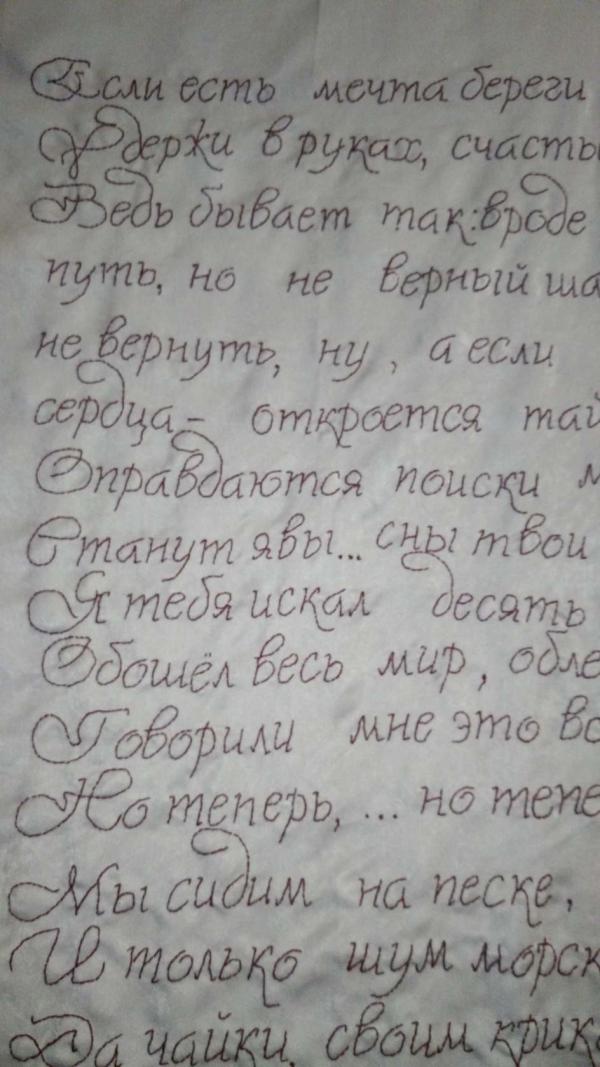 Если есть мечта береги
Удержи в руках, счасть
Ведь бывает так:вроде
путь, но не верный ша
не вернуть, ну, а если
сердца- откроется тай
Оправдаются поиски м
Станут явы... сны твои
Я тебя искал десять
Обошёл весь мир, обле
Говорили мне это вс
Но теперь, ... но тепе
Мы сидим на песке,
И только шум морск
Да чайки, своим крик